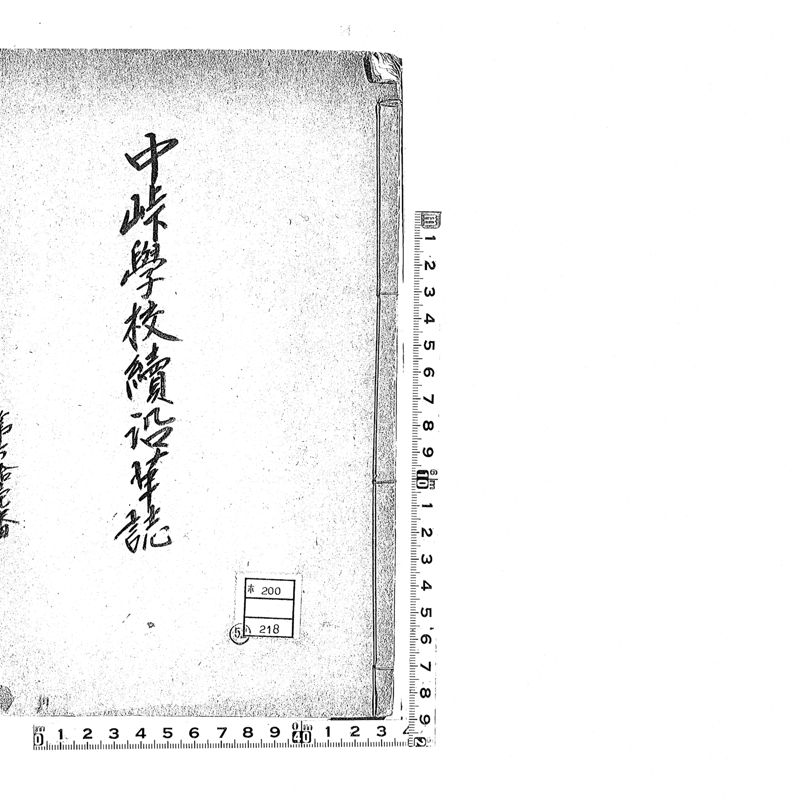 中峠學校續沿革誌
ホ 200
218
5
1 2 3 4 5 6 7 8 9 10 1 2 3 4 5 6 7 8 9
0 1 2 3 4 5 6 7 8 9 10 1 2 3 4